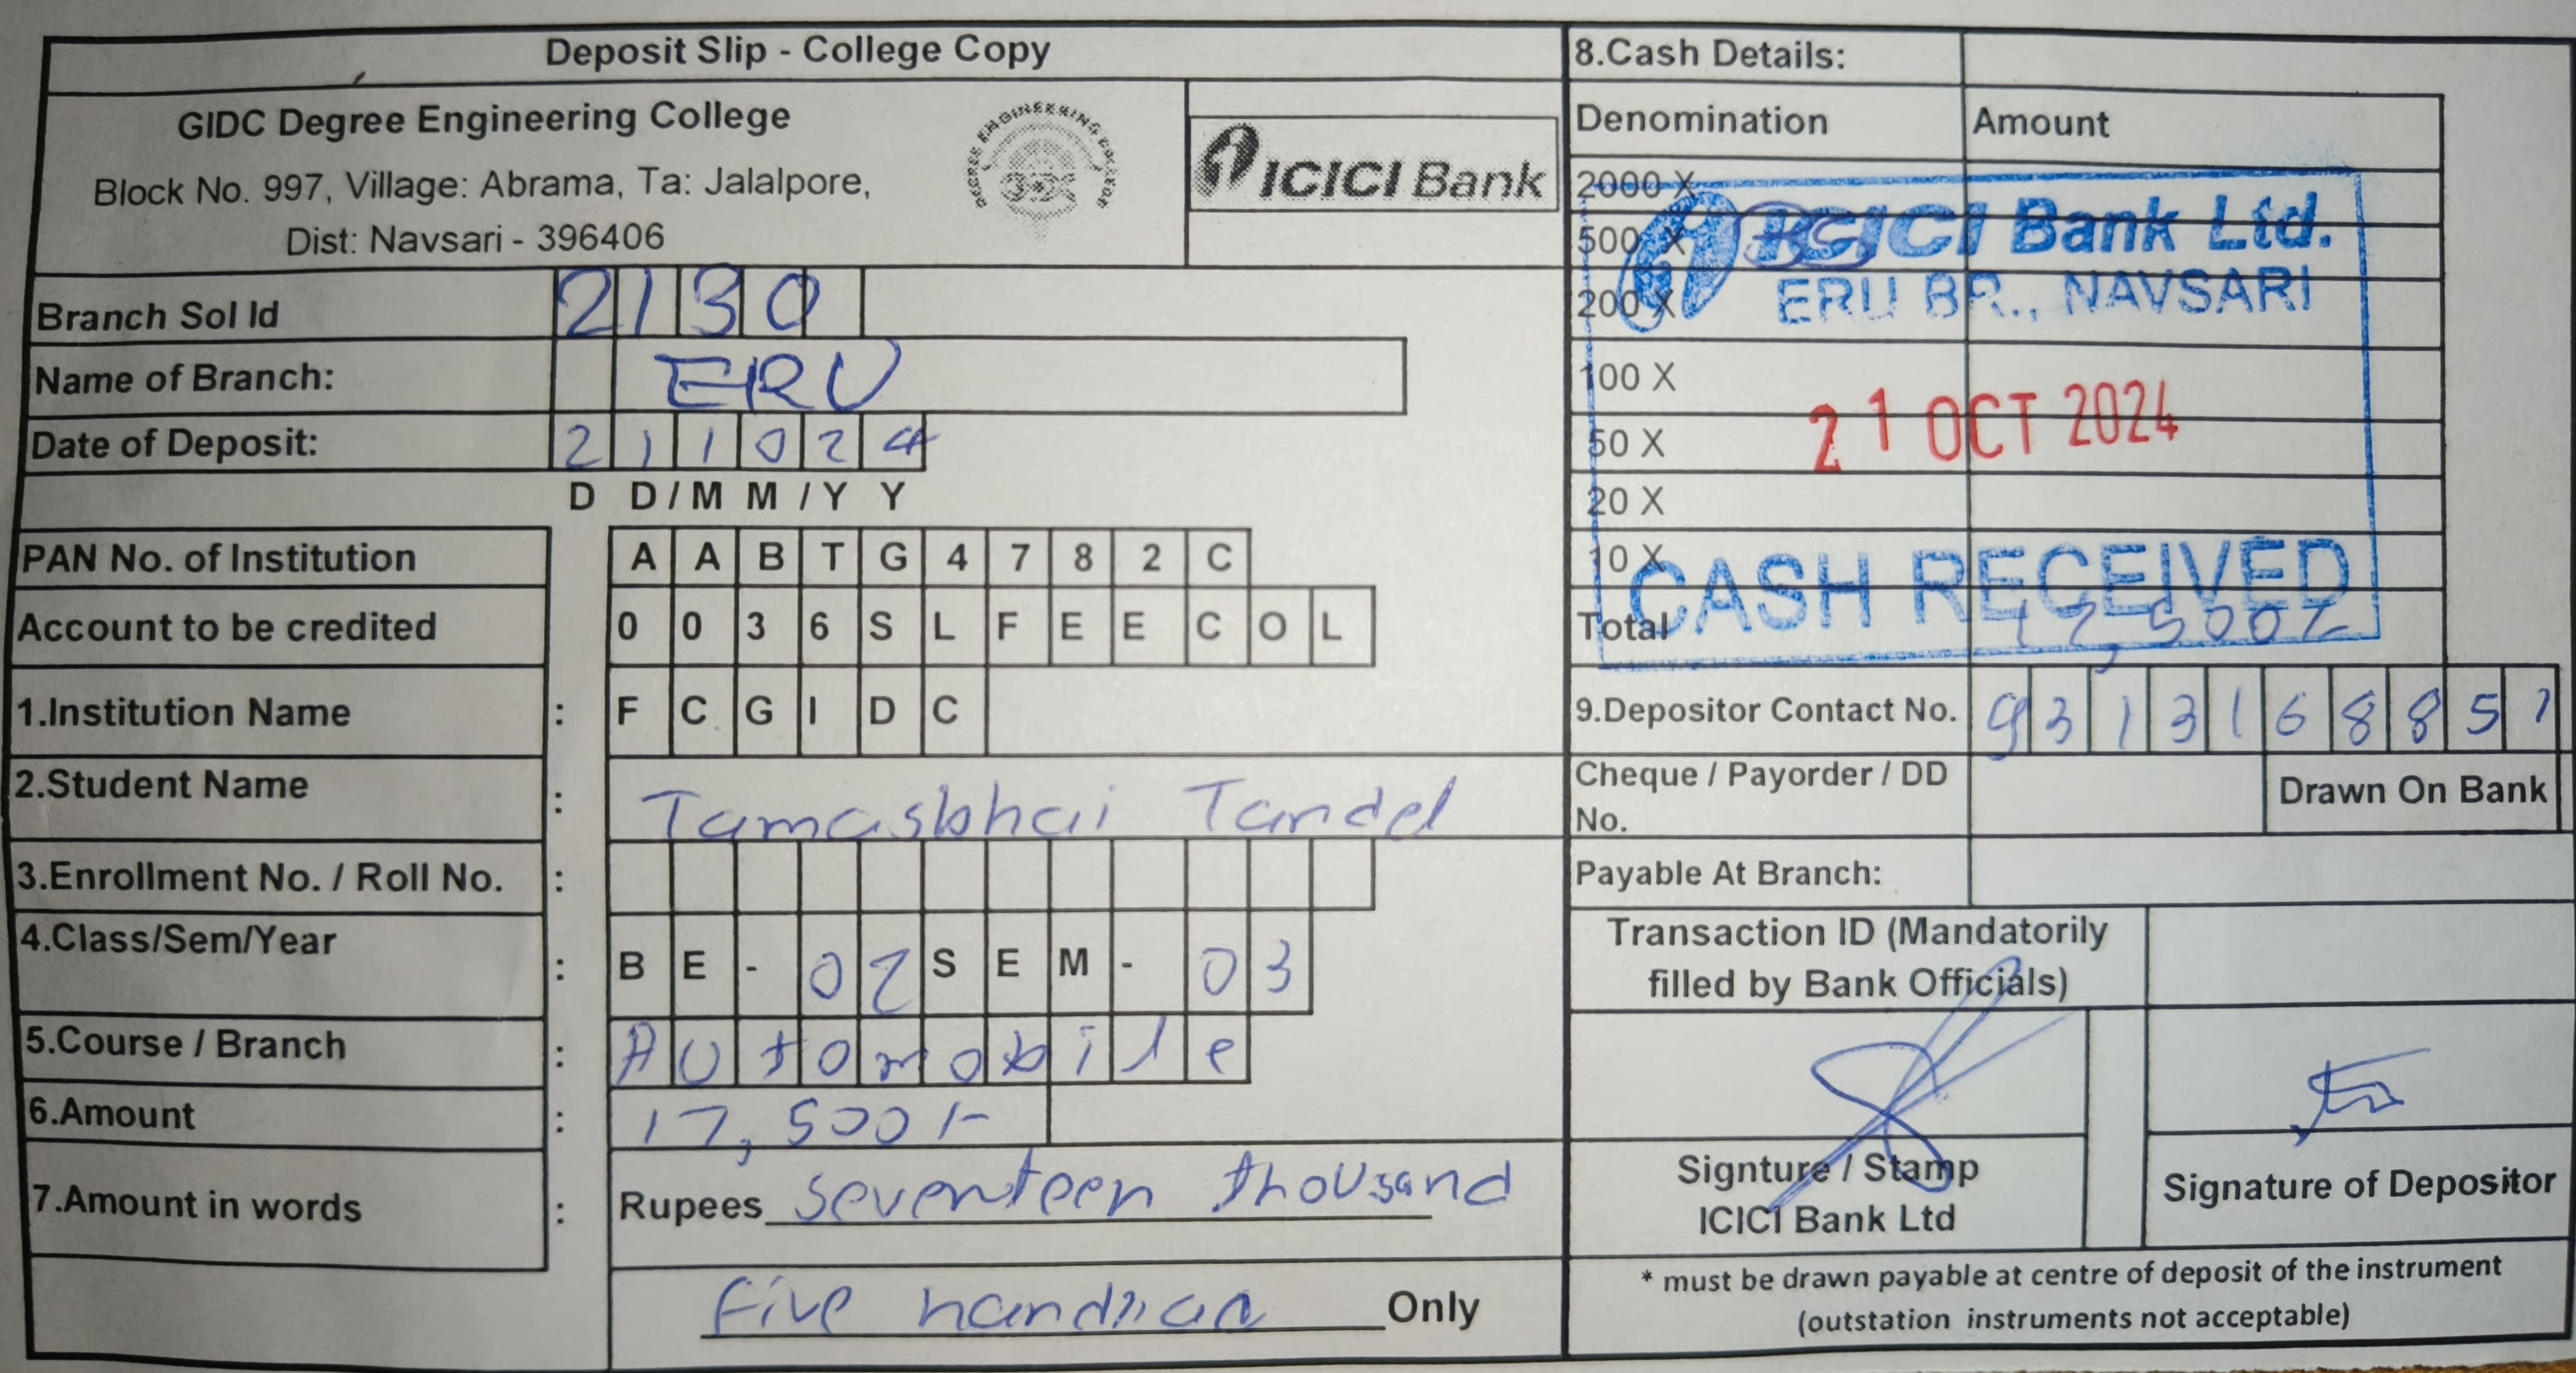 Deposit Slip - College Copy
GIDC Degree Engineering College
Block No. 997, Village: Abrama, Ta: Jalalpore,
Dist: Navsari - 396406
ICICI Bank
Branch Sol Id 2130
Name of Branch: ERU
Date of Deposit: 211024
D D / M M / Y Y
PAN No. of Institution AABTG4782C
Account to be credited 0036SLFEECOL
1.Institution Name : FCGIDC
2.Student Name : Tamasbhai Tandel
3.Enrollment No. / Roll No. :
4.Class/Sem/Year : BE-02SEM-03
5.Course / Branch : Automobile
6.Amount : 17,500/-
7.Amount in words : Rupees seventeen thousand
five Only
8.Cash Details:
Denomination Amount
2000 X
500 X 35
200 X
100 X
50 X
20 X
10 X
Total 17,500/-
ICICI Bank Ltd.
ERU BR., NAVSARI
21 OCT 2024
CASH RECEIVED
9.Depositor Contact No. 9313168857
Cheque / Payorder / DD
No.
Drawn On Bank
Payable At Branch:
Transaction ID (Mandatorily
filled by Bank Officials)
Signture / Stamp
ICICI Bank Ltd
Signature of Depositor
* must be drawn payable at centre of deposit of the instrument
(outstation instruments not acceptable)